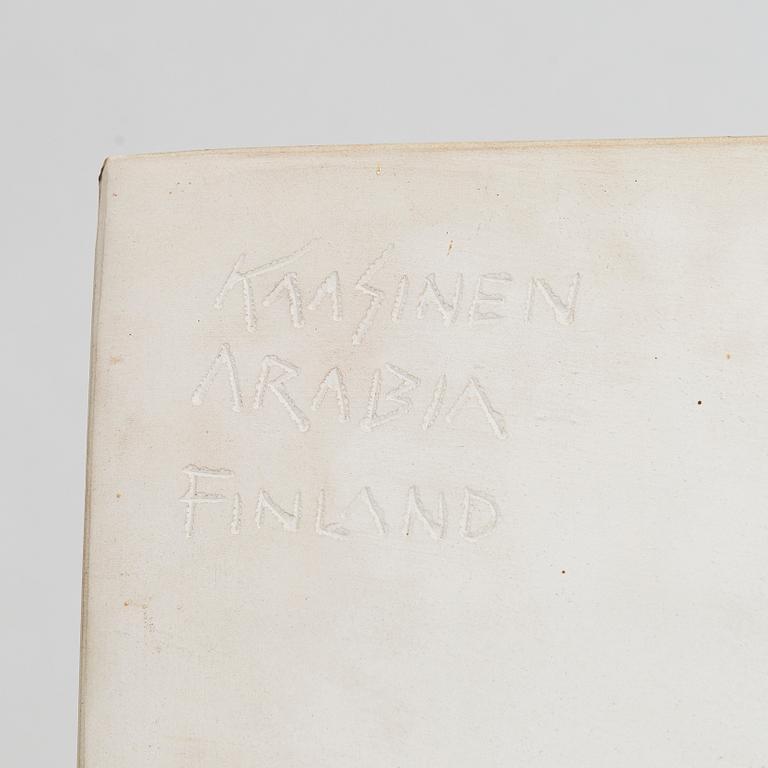 KAASINEN
ARABIA
FINLAND